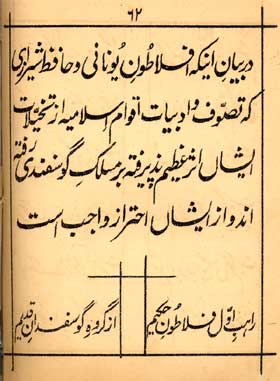 ۶۲
در بیان اینکه فلاطون یونانی و حافظ شیرازی
که تصوف و ادبیات اقوام اسلامیه از تخیلات
ایشان اثر عظیم پذیرفته بر مسلک گوسفندی رفته
اند و از ایشان احتراز واجب است
راہب اول فلاطون حکیم
از گروہ گوسفندان قدیم